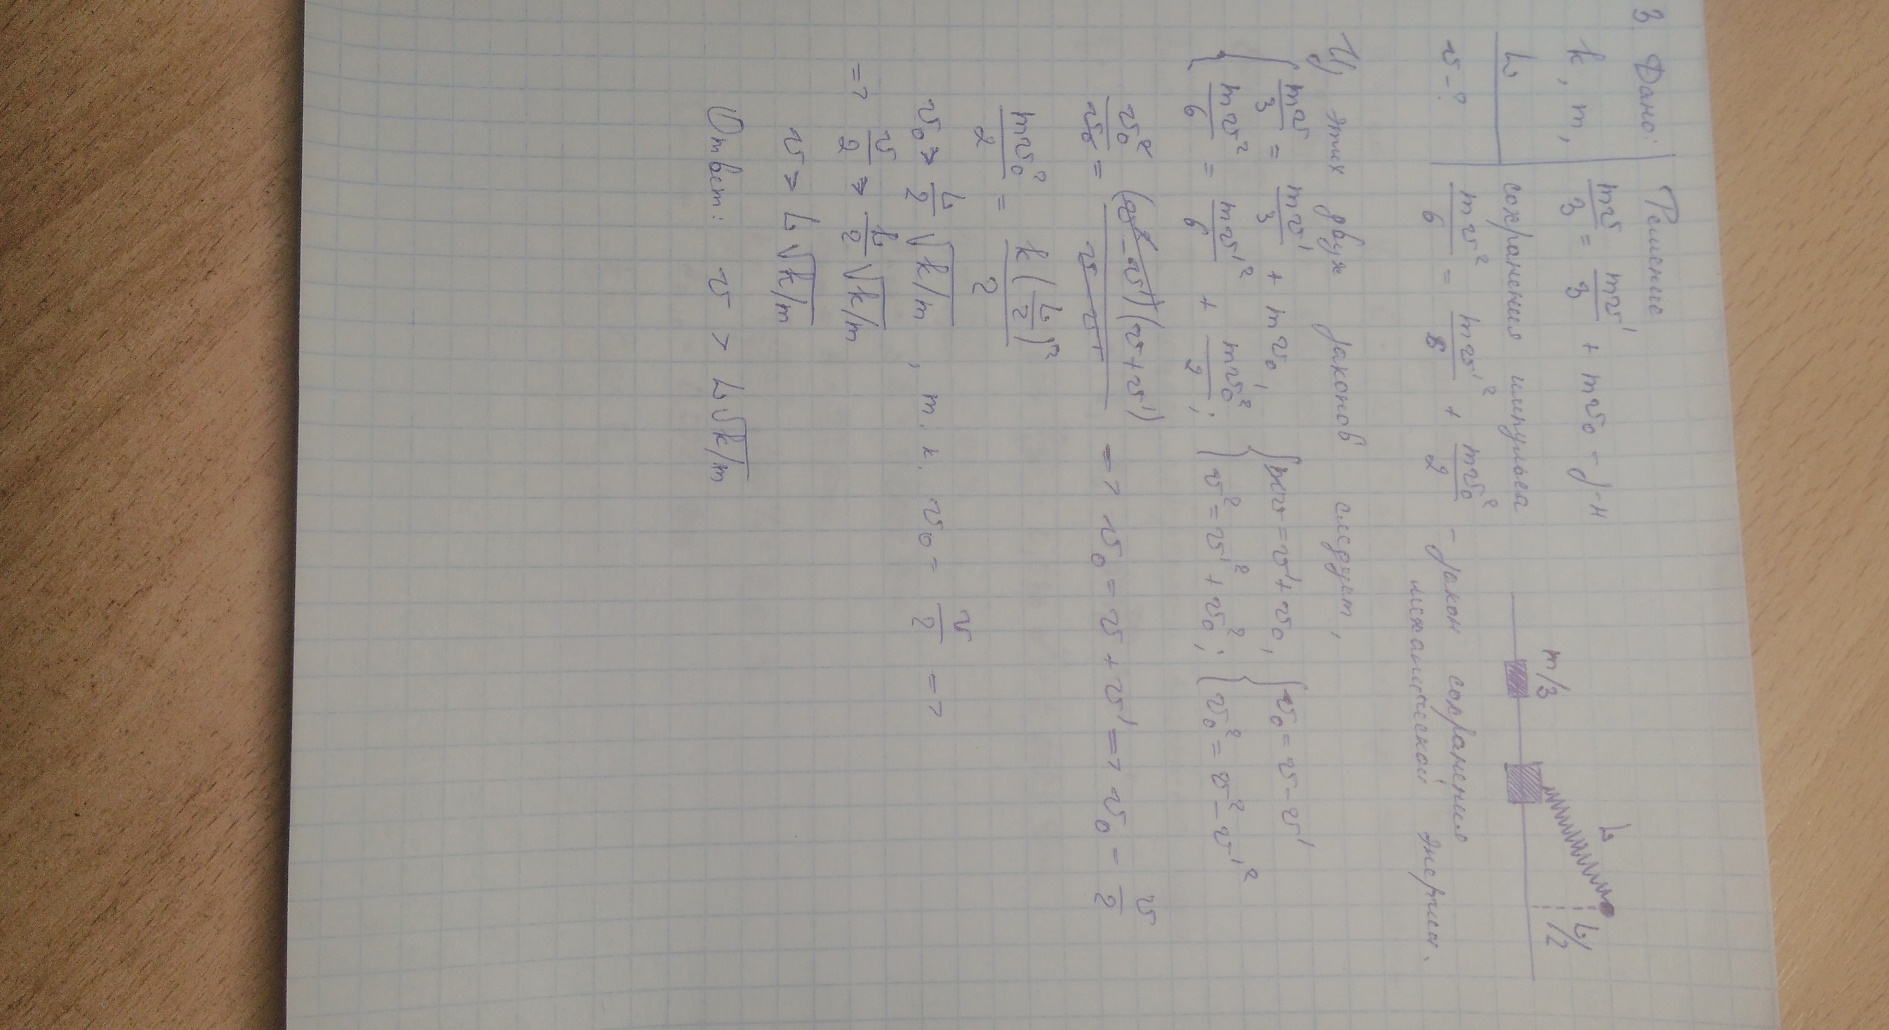 3. Дано:
k, m,
L
v-?
Решение
mv/3 = mv'/3 + mv₀ - з-н
сохранения импульса
mv²/6 = mv'²/6 + mv₀²/2 - закон сохранения
механической энергии.
m/3
L
L/2
Из этих двух законов следует,
{ mv/3 = mv'/3 + mv₀,
{ mv²/6 = mv'²/6 + mv₀²/2;
{ v = v' + v₀,
{ v² = v'² + v₀²;
{ v₀ = v - v'
{ v₀² = v² - v'²
v₀²/v₀ = (v - v')(v + v')/(v - v') => v₀ = v + v' => v₀ = v/2
mv₀²/2 = k(L/2)²/2
v₀ > L/2 √k/m , т.к. v₀ = v/2 =>
=> v/2 > L/2 √k/m
v > L√k/m
Ответ: v > L√k/m